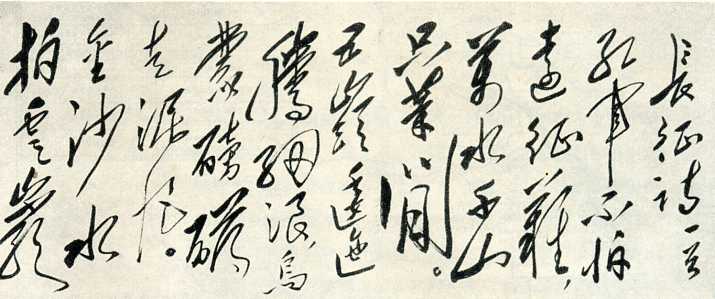 長征詩一首
紅軍不怕
遠征難，
萬水千山
只等閒。
五嶺逶迤
騰細浪，烏
蒙磅礴
走泥丸。
金沙水
拍雲巖